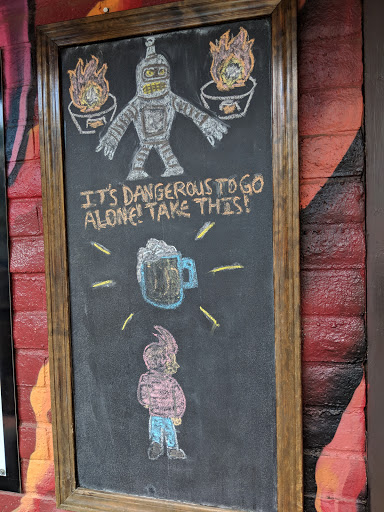 IT'S DANGEROUS TO GO
ALONE! TAKE THIS!